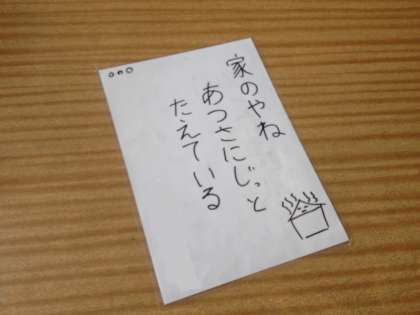 家のやね
あつさにじっと
たえている